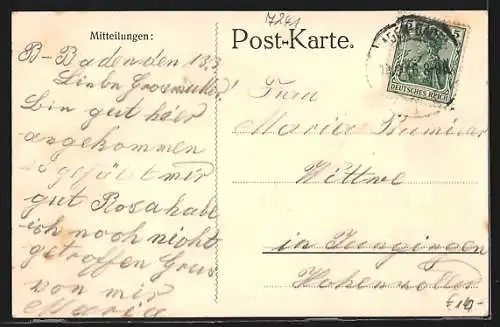 7241
Mitteilungen:
Post-Karte.
BADEN
5
DEUTSCHES REICH
B-Baden den 13.3
Liebe Grosmutter!
bin gut hier
angekommen
es gefällt mir
gut Rosa habe
ich noch nicht
getroffen Grus
von mir
Maria
Frau
Maria Bumiller
Wittwe
in Jungingen
Hohenzoller